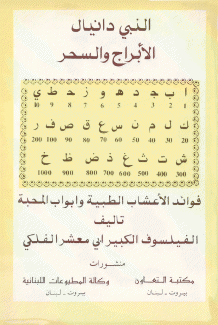 النبي دانيال
الأبراج والسحر
ا ب ج د ه و ز ح ط ي
10 9 8 7 6 5 4 3 2 1
ك ل م ن س ع ف ص ق ر
200 100 90 80 70 60 50 40 30 20
ش ت ث خ ذ ض ظ غ
1000 900 800 700 600 500 400 300
فوائد الأعشاب الطبية وابواب المحبة
تاليف
الفيلسوف الكبير ابي معشر الفلكي
منشورات
مكتبة التعاون
بيروت - لبنان
وكالة المطبوعات اللبنانية
بيروت - لبنان